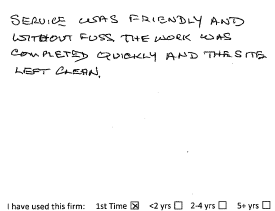 SERVICE WAS FRIENDLY AND
WITHOUT FUSS. THE WORK WAS
COMPLETED QUICKLY AND THE SITE
LEFT CLEAN.
I have used this firm: 1st Time ☒ <2 yrs ☐ 2-4 yrs ☐ 5+ yrs ☐